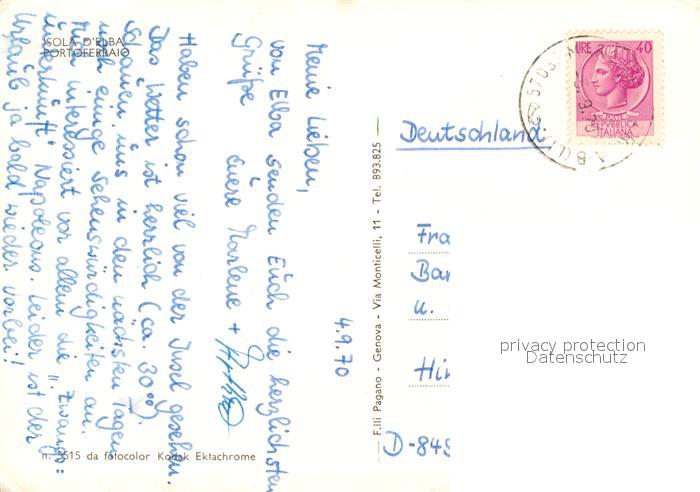 ISOLA D'ELBA
PORTOFERRAIO
4.9.70
Meine Lieben,
von Elba senden Euch die herzlichsten
Grüße Eure Marlene +
Haben schon viel von der Insel gesehen.
Das Wetter ist herrlich (ca. 30°).
Schauen uns in den nächsten Tagen
noch einige Sehenswürdigkeiten an.
Mich interessiert vor allem die "Zwangs=
unterkunft" Napoleons. Leider ist der
Urlaub ja bald wieder vorbei!
n. 5515 da fotocolor Kodak Ektachrome
F.lli Pagano - Genova - Via Monticelli, 11 - Tel. 893.825
LIRE 40
REPVBBLICA
ITALIANA
Deutschland
Fra
Bar
u.
Hin
D-845
privacy protection
Datenschutz